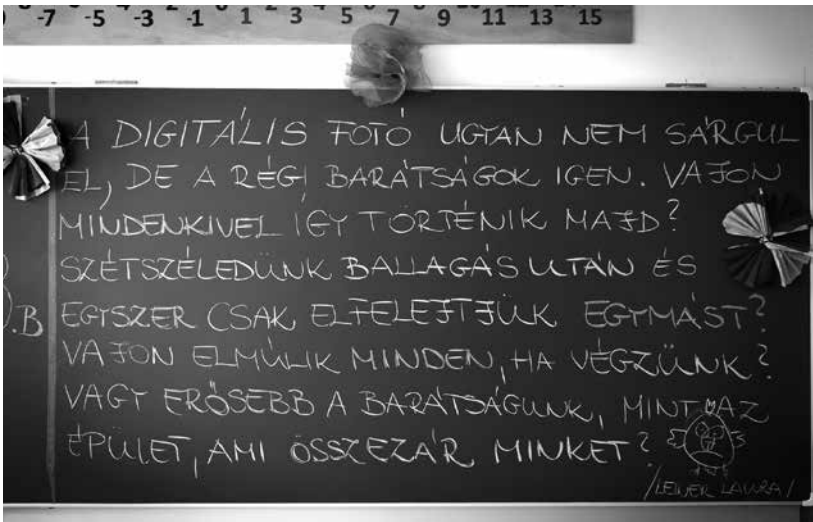 -7 -5 -3 -1 1 3 5 7 9 11 13 15
A DIGITÁLIS FOTÓ UGYAN NEM SÁRGUL
EL, DE A RÉGI BARÁTSÁGOK IGEN. VAJON
MINDENKIVEL ÍGY TÖRTÉNIK MAJD?
SZÉTSZÉLEDÜNK BALLAGÁS UTÁN ÉS
.B EGYSZER CSAK ELFELEJTJÜK EGYMÁST?
VAJON ELMÚLIK MINDEN, HA VÉGZÜNK?
VAGY ERŐSEBB A BARÁTSÁGUNK, MINT AZ
ÉPÜLET, AMI ÖSSZEZÁR MINKET?
/LEINER LAURA/